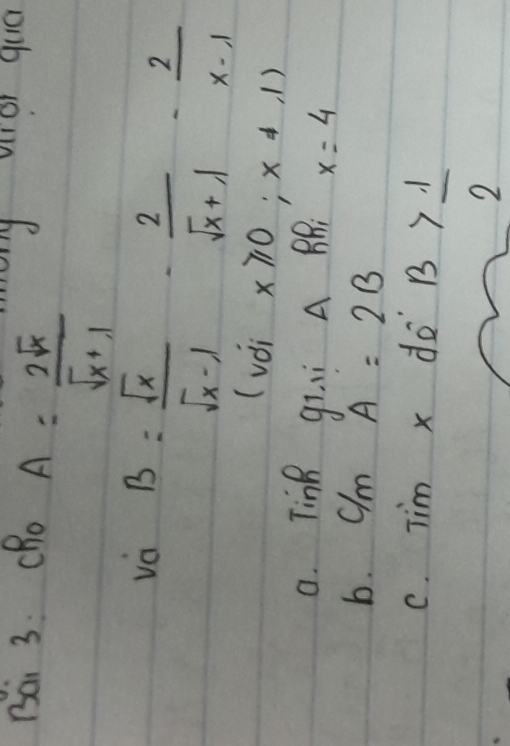 Bài 3. cho A = 2√x / √x+1
và B = √x / √x-1 - 2 / √x+1 - 2 / x-1
(với x ≥ 0 ; x ≠ 1)
a. Tính gt A khi x = 4
b. C/m A = 2B
c. Tìm x để B > 1/2